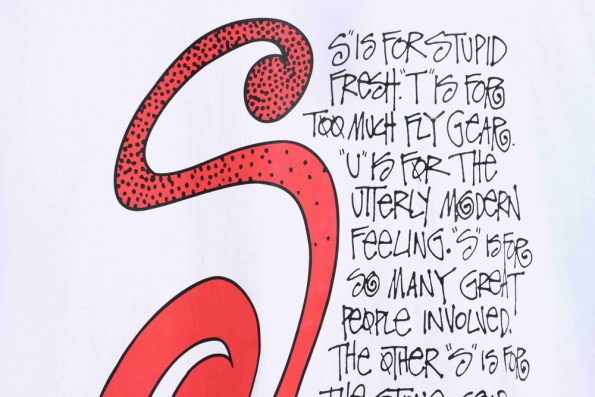 S" IS FOR STUPID
FRESH. "T" IS FOR
TOO MUCH FLY GEAR.
"U" IS FOR THE
UTTERLY MODERN
FEELING. "S" IS FOR
SO MANY GREAT
PEOPLE INVOLVED.
THE OTHER "S" IS FOR
THE